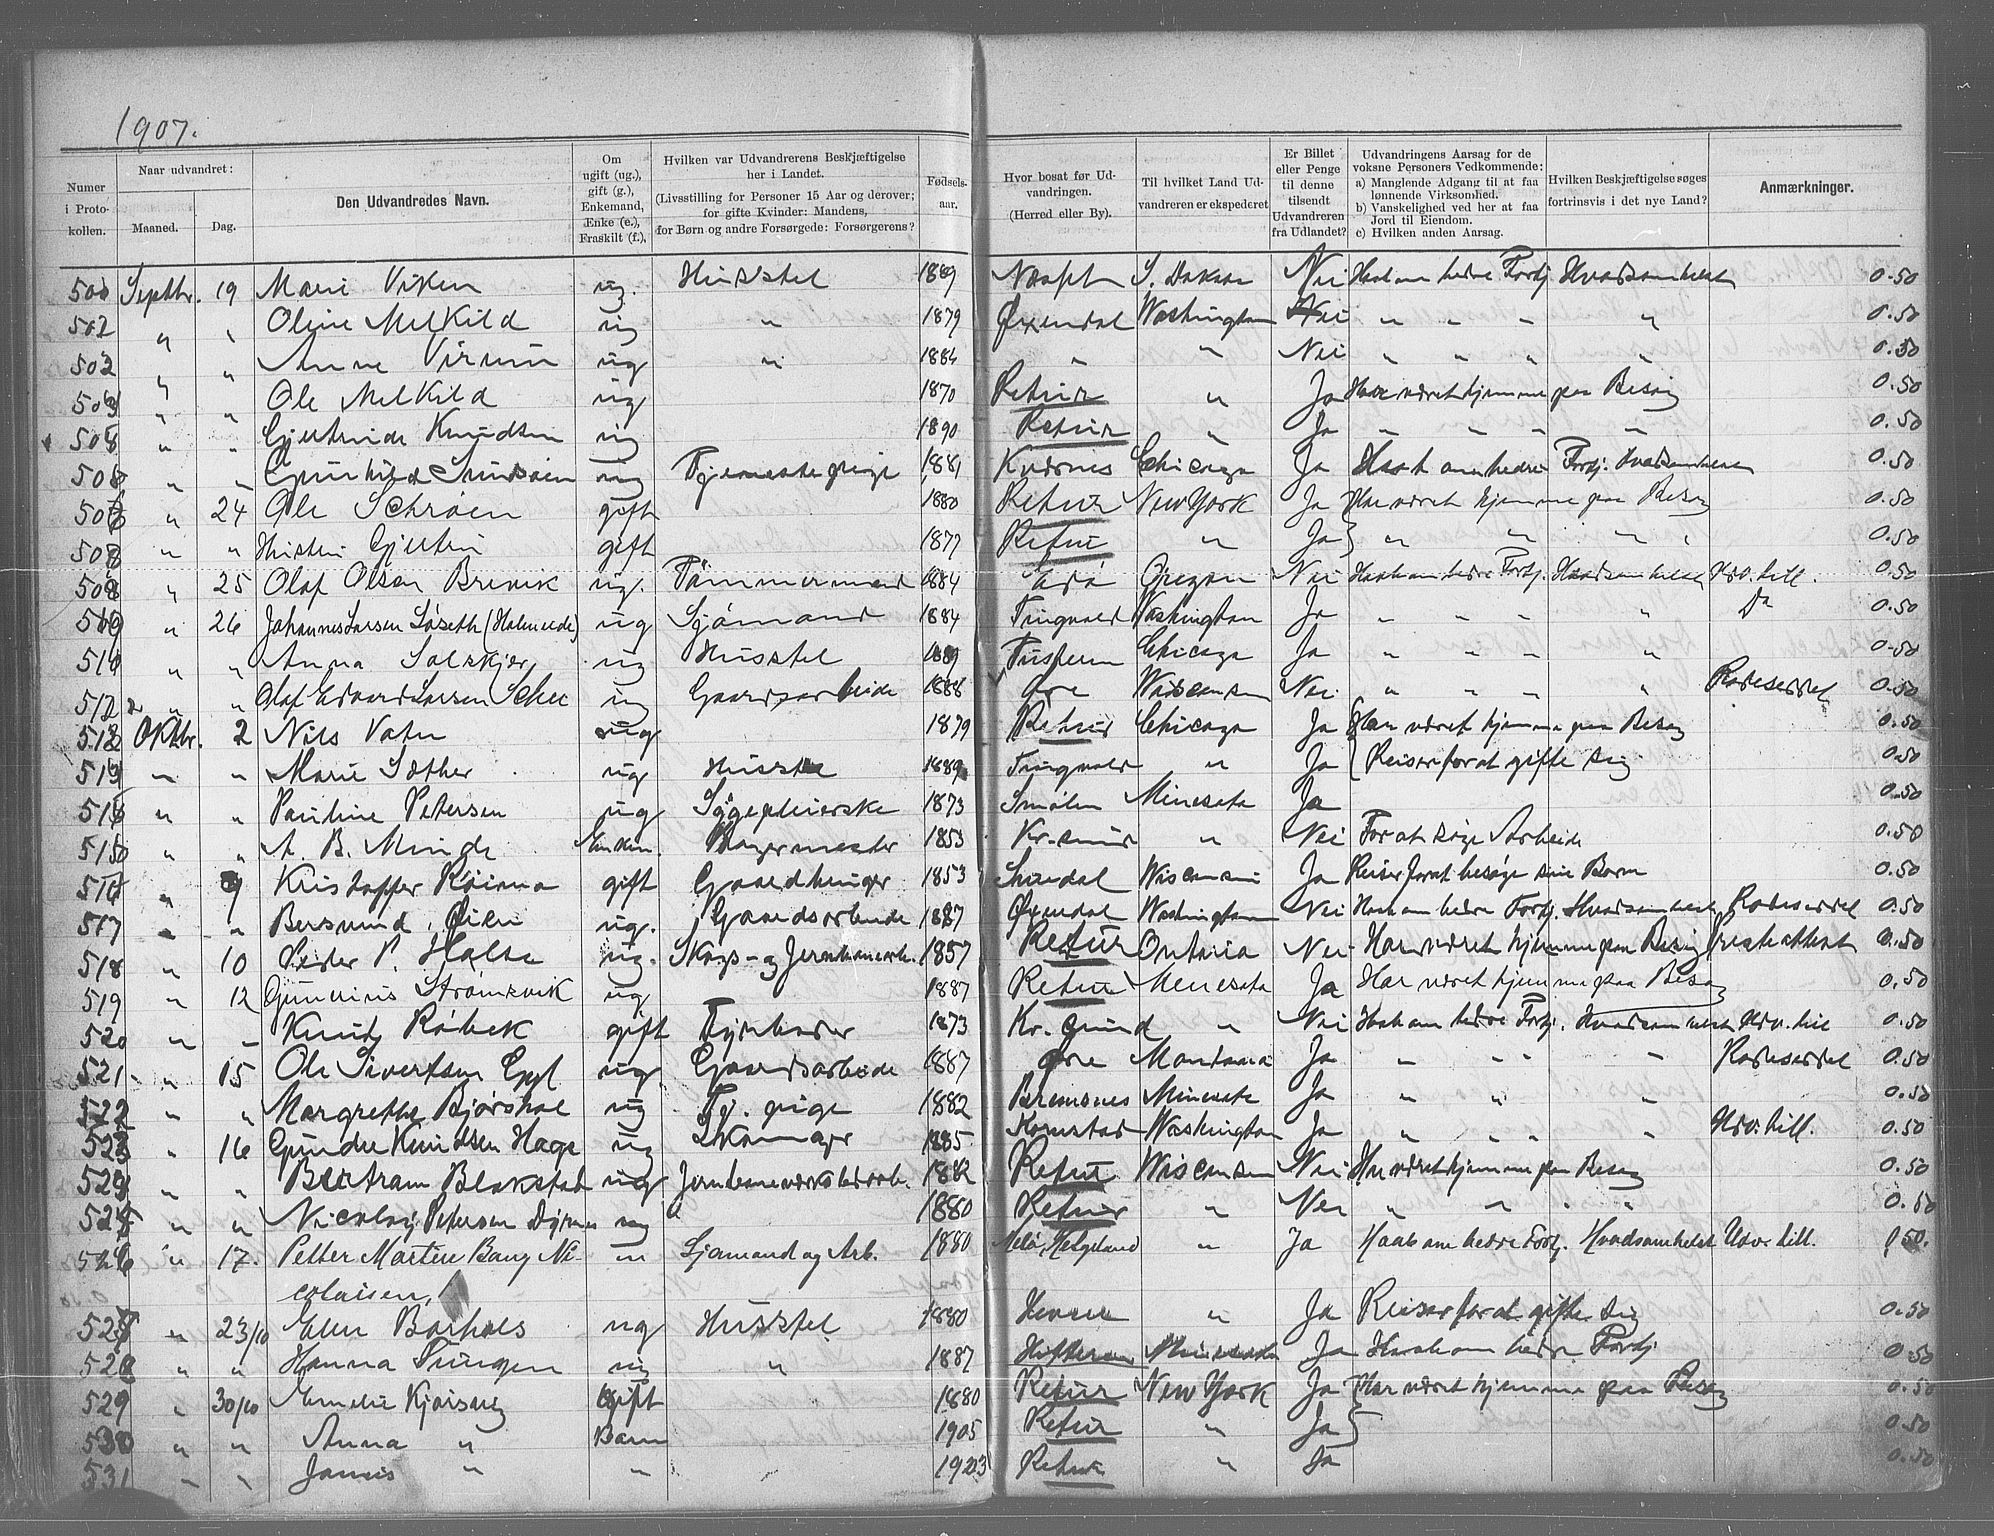 1907.
Numer i Proto-kollen. | Naar udvandret: Maaned. Dag. | Den Udvandredes Navn. | Om ugift (ug.), gift (g.), Enkemand, Enke (e.), Fraskilt (f.), | Hvilken var Udvandrerens Beskjæftigelse her i Landet. (Livsstilling for Personer 15 Aar og derover; for gifte Kvinder: Mandens, for Børn og andre Forsørgede: Forsørgerens? | Fødsels-aar. | Hvor bosat før Ud-vandringen. (Herred eller By). | Til hvilket Land Ud-vandreren er ekspederet | Er Billet eller Penge til denne tilsendt Udvandreren fra Udlandet? | Udvandringens Aarsag for de voksne Personers Vedkommende: a) Manglende Adgang til at faa lønnende Virksomhed. b) Vanskelighed ved her at faa Jord til Eiendom. c) Hvilken anden Aarsag. | Hvilken Beskjæftigelse søges fortrinsvis i det nye Land? | Anmærkninger.
Septbr. 19 Marie Viken ug. Husstel 1889 Næsset S. Dakota Nei Haab om bedre Fortj. Hvadsomhelst 0.50
" " Oline Melkild ug " 1879 Øxendal Washington Nei " " " " 0.50
" " Anne Virum ug " 1884 " " Nei " " " " 0.50
" " Ole Melkild ug 1870 Retur " Ja Har været hjemme paa Besøg 0.50
" " Gjertrude Knudsen ug 1890 Retur " Ja " " " " 0.50
" " Gunhild ug Tjenestepige 1881 Kvernes Chicago Ja Haab om bedre Fortj. Hvadsomhelst 0.50
" 24 Ole Schrøen gift 1880 Retur New York Ja Har været hjemme paa Besøg 0.50
" " gift 1877 Retur " Ja " " " " 0.50
" 25 Olaf Olsen Brevik ug. Tømmermand 1884 Edø Oregon Nei Haab om bedre Fortj. Hvadsomhelst Udv. till. 0.50
" 26 Johannes Larsen Løseth ug Sjømand 1884 Tingvold Washington Ja " " " " Do 0.50
" " Anna Solskjer ug Husstel 1889 Tustern Chicago Ja " " " " 0.50
512 " " Olaf Edvard Larsen ug Gaardsarbeide 1888 Øre Wisconsin Nei " " " " Rodeseddel 0.50
Oktbr. 2 Nils Vatn ug 1879 Retur Chicago Ja Har været hjemme paa Besøg 0.50
" " Marie Sæther ug Husstel 1889 Tingvold " Ja Reiser for at gifte sig 0.50
" " Pauline Petersen ug Sygepleierske 1873 Smølen Minesota Ja 0.50
" " A. B. Minde Enkem. Bagermester 1853 Kr.sund " Nei For at søge Arbeide 0.50
" 9 Kristoffer gift Gaardbruger 1853 Sundal Wisconsin Ja Reiser for at besøge sine Børn 0.50
517 " " Bersvend Øien ug. Gaardsarbeide 1887 Øxendal Washington Nei Haab om bedre Fortj. Hvadsomhelst Rodeseddel 0.50
518 " 10 Peder P. Halsa ug. Skogs- og Jernbanearb. 1857 Retur Ontario Nei Har været hjemme paa Besøg Presteattest 0.50
519 " 12 Gunerius Strømsvik ug 1887 Retur Menesota Ja Har været hjemme paa Besøg 0.50
520 " " Knud Røbek gift Fyrbøder 1873 Kr. sund " Nei Haab om bedre Fortj. Hvadsomhelst Udv. till 0.50
521 " 15 Ole Sivertsen ug Gaardsarbeide 1887 Øre Montana Ja " " " " Rodeseddel 0.50
522 " " Margrethe ug Tj. pige 1882 Bremsnes Minesota Ja " " " " 0.50
523 " 16 Knudsen Hage ug Skomager 1885 Kornstad Washington Ja " " " " Udv. till. 0.50
" " Bertram Blakstad ug 1882 Retur Wisconsin Nei Har været hjemme paa Besøg 0.50
" " Nicolay Petersen ug 1880 Retur " Nei " " " " 0.50
526 " 17. Petter Martin Bang Ni- " Sjømand og Arb. 1880 Helgeland " Ja Haab om bedre Fortj. Hvadsomhelst Udv. till. 0.50.
colaisen,
527 " 23/10 Elen ug Husstel 1880 " Ja Reiser for at gifte sig 0.50
528 " " Hanna ug " 1887 Minesota Ja Haab om bedre Fortj 0.50
529 " 30/10 Emelie gift 1880 Retur New York Ja Har været hjemme paa Besøg 0.50
530 " " Anna " Barn 1905 Retur " Ja 0.50
531 " " James " " 1903 Retur " Ja 0.50